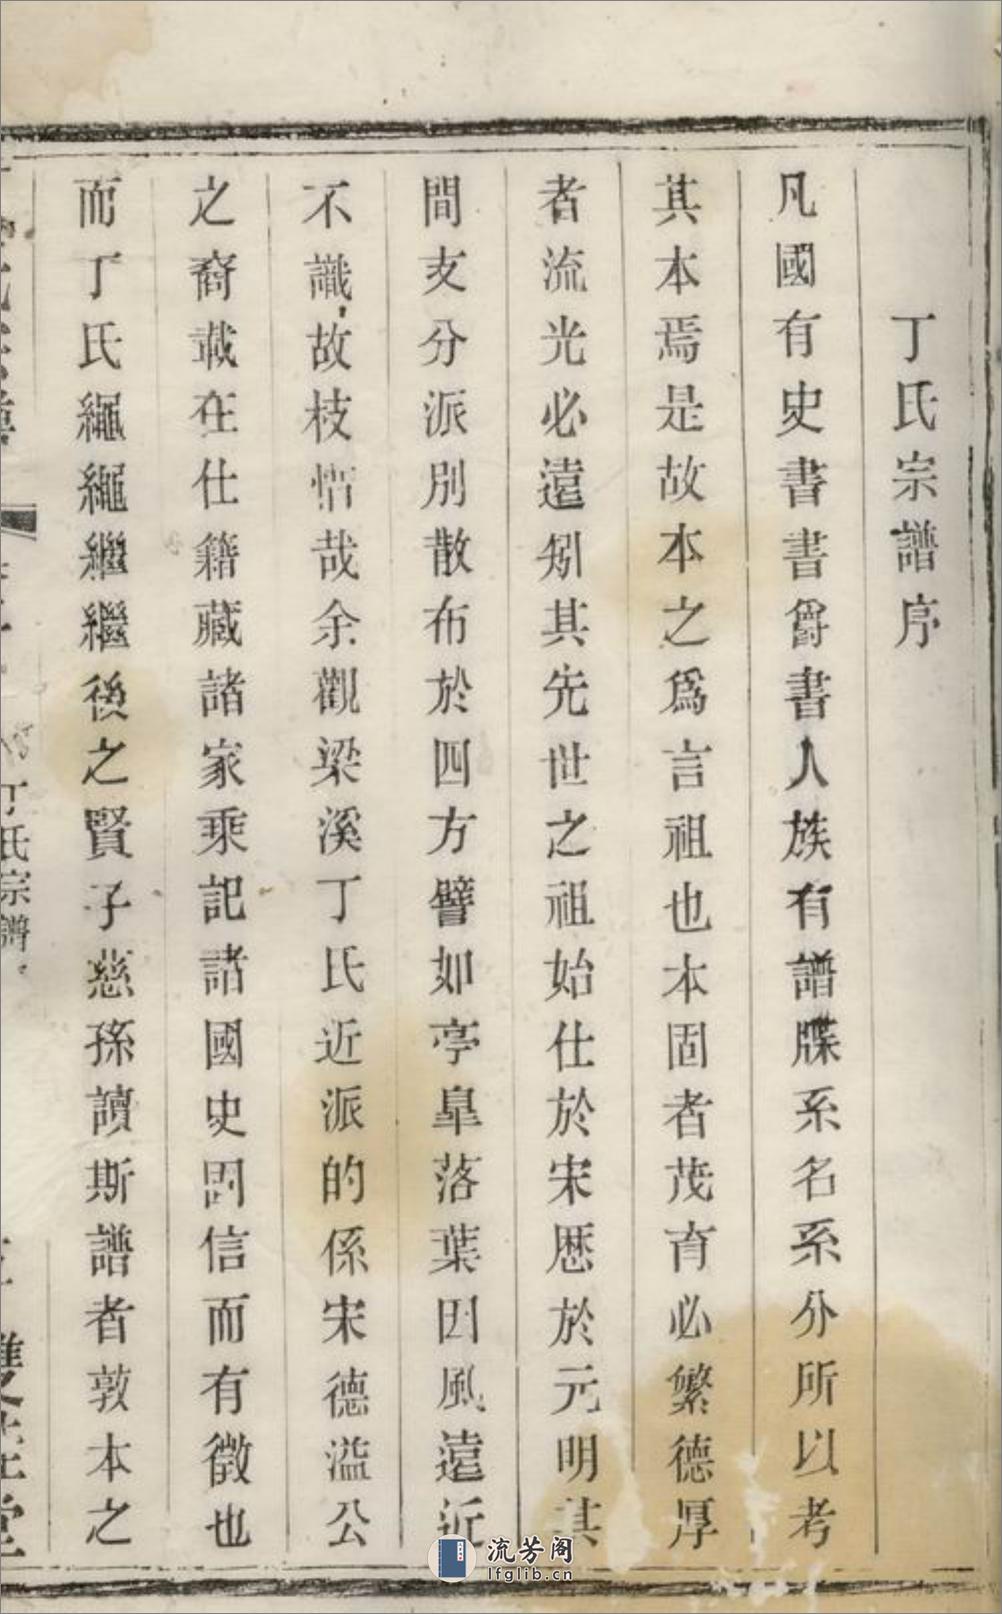 丁氏宗譜序
凡國有史書書爵書人族有譜牒系名系分所以考
其本焉是故本之爲言祖也本固者茂育必繁德厚
者流光必遠矧其先世之祖始仕於宋歴於元明其
間支分派別散布於四方譬如亭臯落葉因風遠近
不識故枝惜哉余觀梁溪丁氏近派的係宋德溢公
之裔載在仕籍藏諸家乘記諸國史罔信而有徵也
而丁氏繩繩繼繼後之賢子慈孫讀斯譜者敦本之
丁氏宗譜
雙桂堂
流芳阁
lfglib.cn